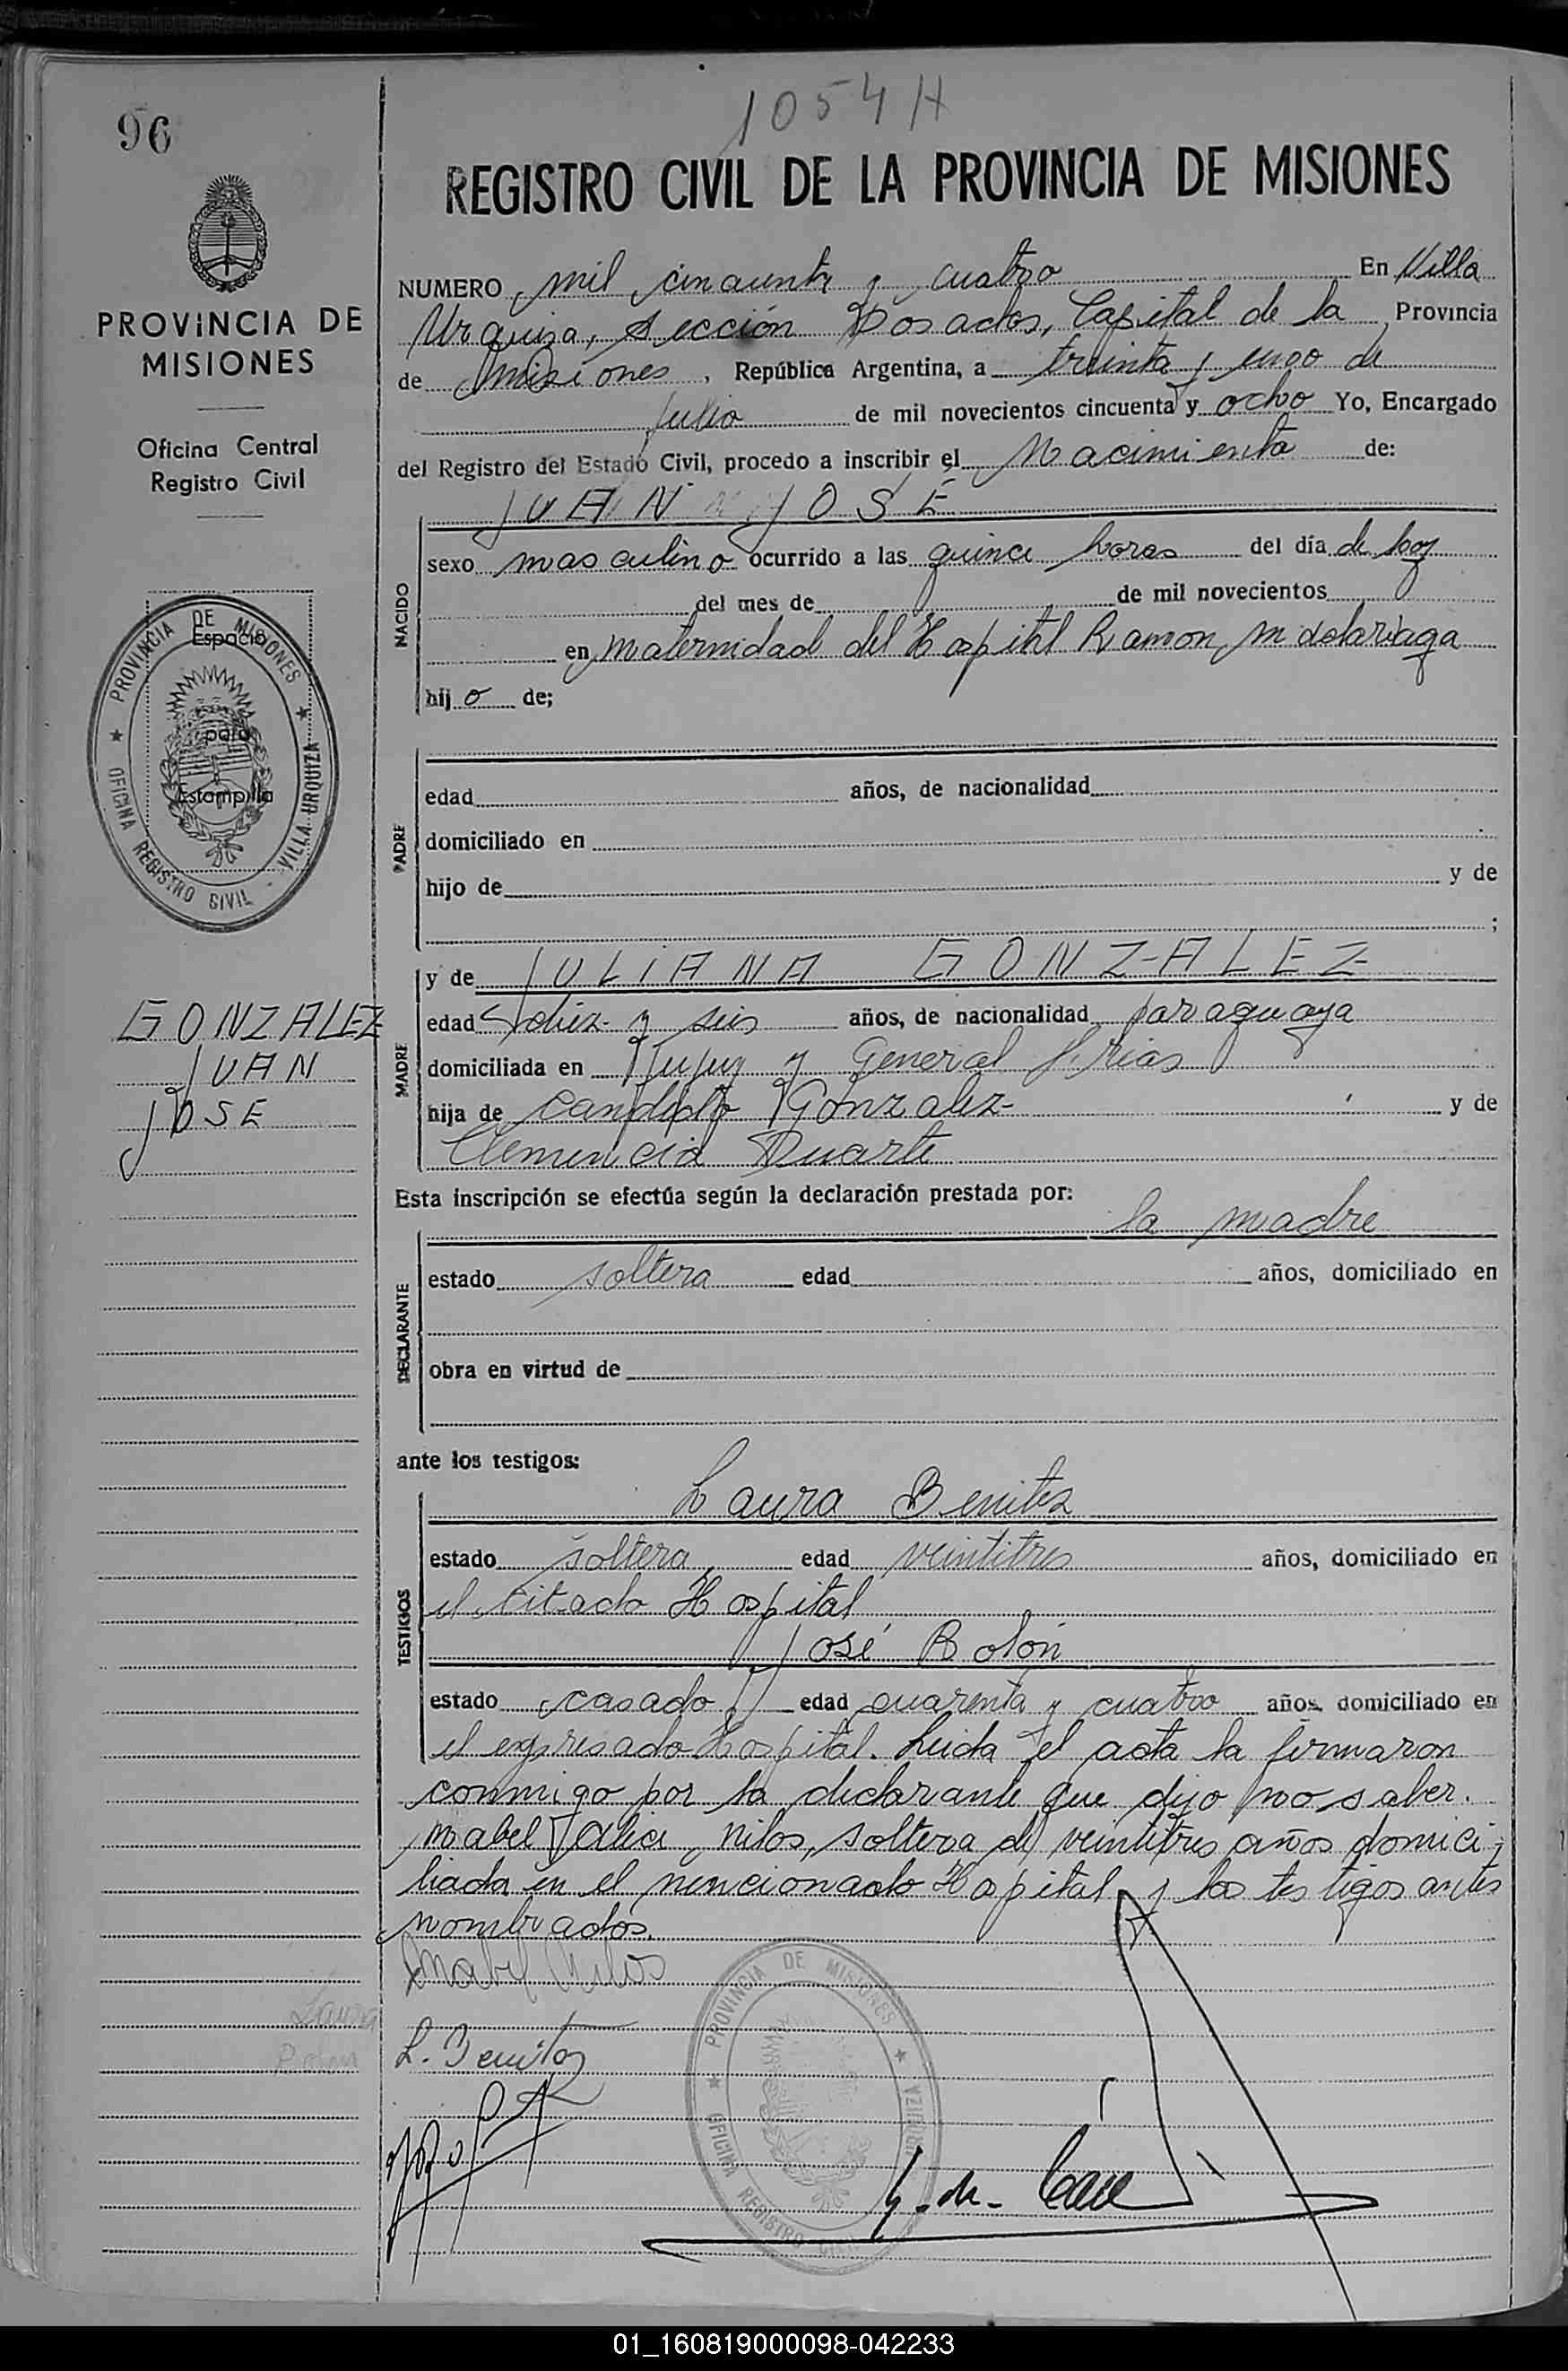 1054 H
96
REGISTRO CIVIL DE LA PROVINCIA DE MISIONES
PROVINCIA DE
MISIONES
Oficina Central
Registro Civil
Espacio
para
Estampilla
PROVINCIA DE MISIONES
OFICINA REGISTRO CIVIL - VILLA URQUIZA
GONZALEZ
JUAN
JOSE
NUMERO mil cincuenta y cuatro En Villa
Urquiza, Sección Posadas, Capital de la Provincia
de Misiones, República Argentina, a treinta y uno de
Julio de mil novecientos cincuenta y ocho Yo, Encargado
del Registro del Estado Civil, procedo a inscribir el Nacimiento de:
NACIDO
JUAN JOSÉ
sexo masculino ocurrido a las quince horas del día de hoy
del mes de de mil novecientos
en maternidad del Hospital Ramon Madariaga
hijo de;
PADRE
edad años, de nacionalidad
domiciliado en
hijo de y de
;
MADRE
y de JULIANA GONZALEZ
edad diez y seis años, de nacionalidad paraguaya
domiciliada en Jujuy y General Frias
hija de Candido Gonzalez y de
Clemencia Duarte
Esta inscripción se efectúa según la declaración prestada por:
la madre
DECLARANTE
estado soltera edad años, domiciliado en
obra en virtud de
ante los testigos:
TESTIGOS
Laura Benitez
estado soltera edad veintitres años, domiciliado en
el citado Hospital
José Rolón
estado casado edad cuarenta y cuatro años, domiciliado en
el expresado Hospital. Leida el acta la firmaron
conmigo por la declarante que dijo no saber.
Mabel Alicia Nilos, soltera de veintitres años domici
liada en el mencionado Hospital y los testigos antes
nombrados.
Mabel Nilos
Laura
L. Benitez
PROVINCIA DE MISIONES
OFICINA REGISTRO CIVIL URQUIZA
01_160819000098-042233